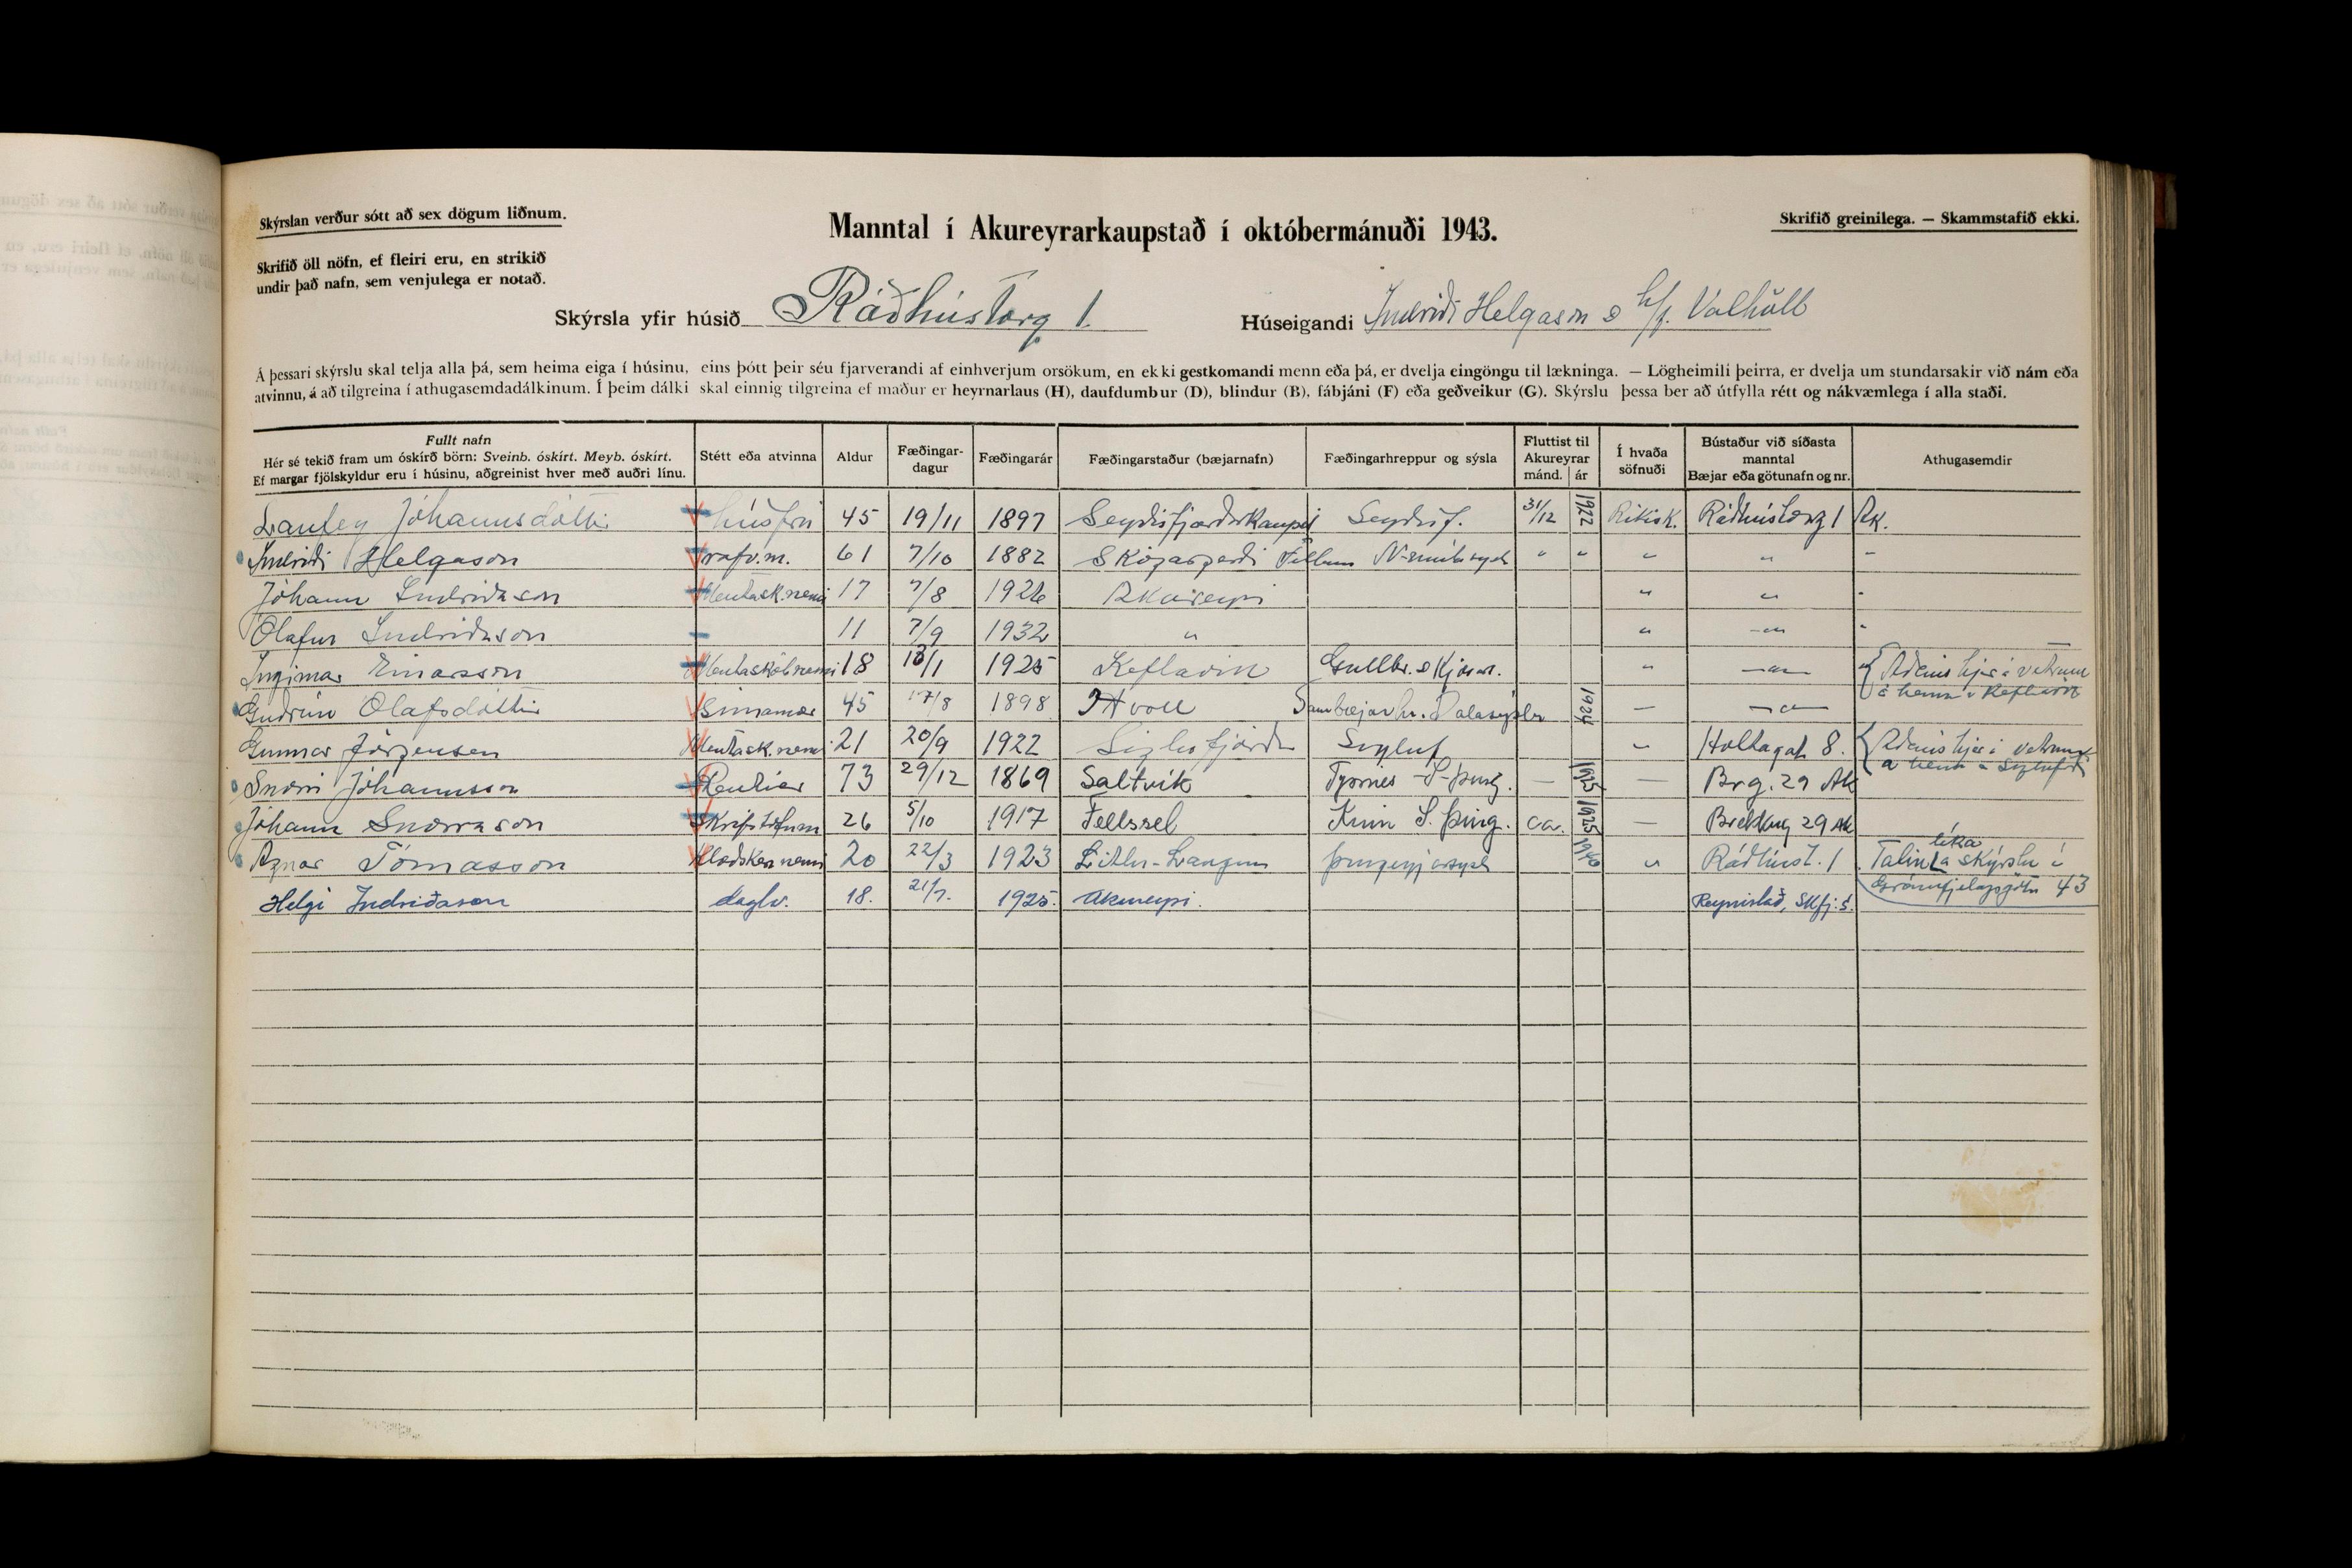 Skýrslan verður sótt að sex dögum liðnum.
Manntal í Akureyrarkaupstað í októbermánuði 1943.
Skrifið greinilega. — Skammstafið ekki.
Skrifið öll nöfn, ef fleiri eru, en strikið
undir það nafn, sem venjulega er notað.
Skýrsla yfir húsið Ráðhústorg 1. Húseigandi Indriði Helgason & h/f. Valhöll
Á þessari skýrslu skal telja alla þá, sem heima eiga í húsinu, eins þótt þeir séu fjarverandi af einhverjum orsökum, en ekki gestkomandi menn eða þá, er dvelja eingöngu til lækninga. — Lögheimili þeirra, er dvelja um stundarsakir við nám eða
atvinnu, á að tilgreina í athugasemdadálkinum. Í þeim dálki skal einnig tilgreina ef maður er heyrnarlaus (H), daufdumbur (D), blindur (B), fábjáni (F) eða geðveikur (G). Skýrslu þessa ber að útfylla rétt og nákvæmlega í alla staði.
Fullt nafn
Hér sé tekið fram um óskírð börn: Sveinb. óskírt. Meyb. óskírt.
Ef margar fjölskyldur eru í húsinu, aðgreinist hver með auðri línu.
Stétt eða atvinna
Aldur
Fæðingar-
dagur
Fæðingarár
Fæðingarstaður (bæjarnafn)
Fæðingarhreppur og sýsla
Fluttist til
Akureyrar
mánd. ár
Í hvaða
söfnuði
Bústaður við síðasta
manntal
Bæjar eða götunafn og nr.
Athugasemdir
Laufey Jóhannsdóttir húsfrú 45 19/11 1897 Seyðisfjarðarkaupst Seyðisf. 31/12 1922 Rikisk. Ráðhústorg 1 Ak.
Indriði Helgason rafv.m. 61 7/10 1882 Skógargerði Fellum N-múlasýsla " " " " "
Jóhann Indriðason Mentask.nemi 17 7/8 1926 Akureyri " " "
Ólafur Indriðason 11 7/9 1932 " " " "
Ingimar Einarsson Mentaskólanemi 18 13/1 1925 Keflavik Gullbr. & Kjósar. " " Aðeins hjer á vetrum
á heima í Keflavik
Guðrún Ólafsdóttir Símamær 45 17/8 1898 Hvoll Saurbæjarhr. Dalasýslu 1924 — "
Gunnar Jörgensen Mentask.nemi 21 20/9 1922 Siglufjörður Sigluf. " Holtagata 8. Aðeins hjer á vetrum
á heima á Siglufirði
Snorri Jóhannsson 73 29/12 1869 Saltvik Tjörnes S-Þing. — 1925 — Brg. 29 Ak
Jóhann Snorrason Skrifstofum 26 5/10 1917 Fellssel Kinn S. Þing. ca. 1925 — Brekkug 29 Ak
Agnar Tómasson Klæðsker.nemi 20 22/3 1923 Litlu-Laugum Þingeyjarsýsla 1940 " Ráðhúst. 1 Talin líka á skýrslu í
Gránufjelagsgötu 43
Helgi Indriðason daglv. 18. 21/7. 1925. Akureyri. Reynistað, Skfj.s.